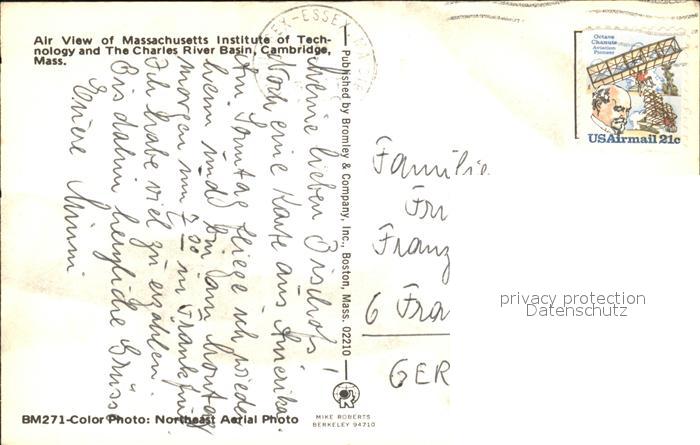 Air View of Massachusetts Institute of Tech-
nology and The Charles River Basin, Cambridge,
Mass.
Meine lieben
Noch eine Karte aus Amerika.
Am Sonntag fliege ich wieder
heim und bin am Montag
morgen um 7 50 in Frankfurt
Ich habe viel zu erzählen.
Bis dahin herzliche Grüsse
Eure Mimmi
Published by Bromley & Company, Inc., Boston, Mass. 02210
Octave
Chanute
Aviation
Pioneer
USAirmail 21c
Familie
Fr
Franz
6 Fra
GER
privacy protection
Datenschutz
MIKE ROBERTS
BERKELEY 94710
BM271-Color Photo: Northeast Aerial Photo